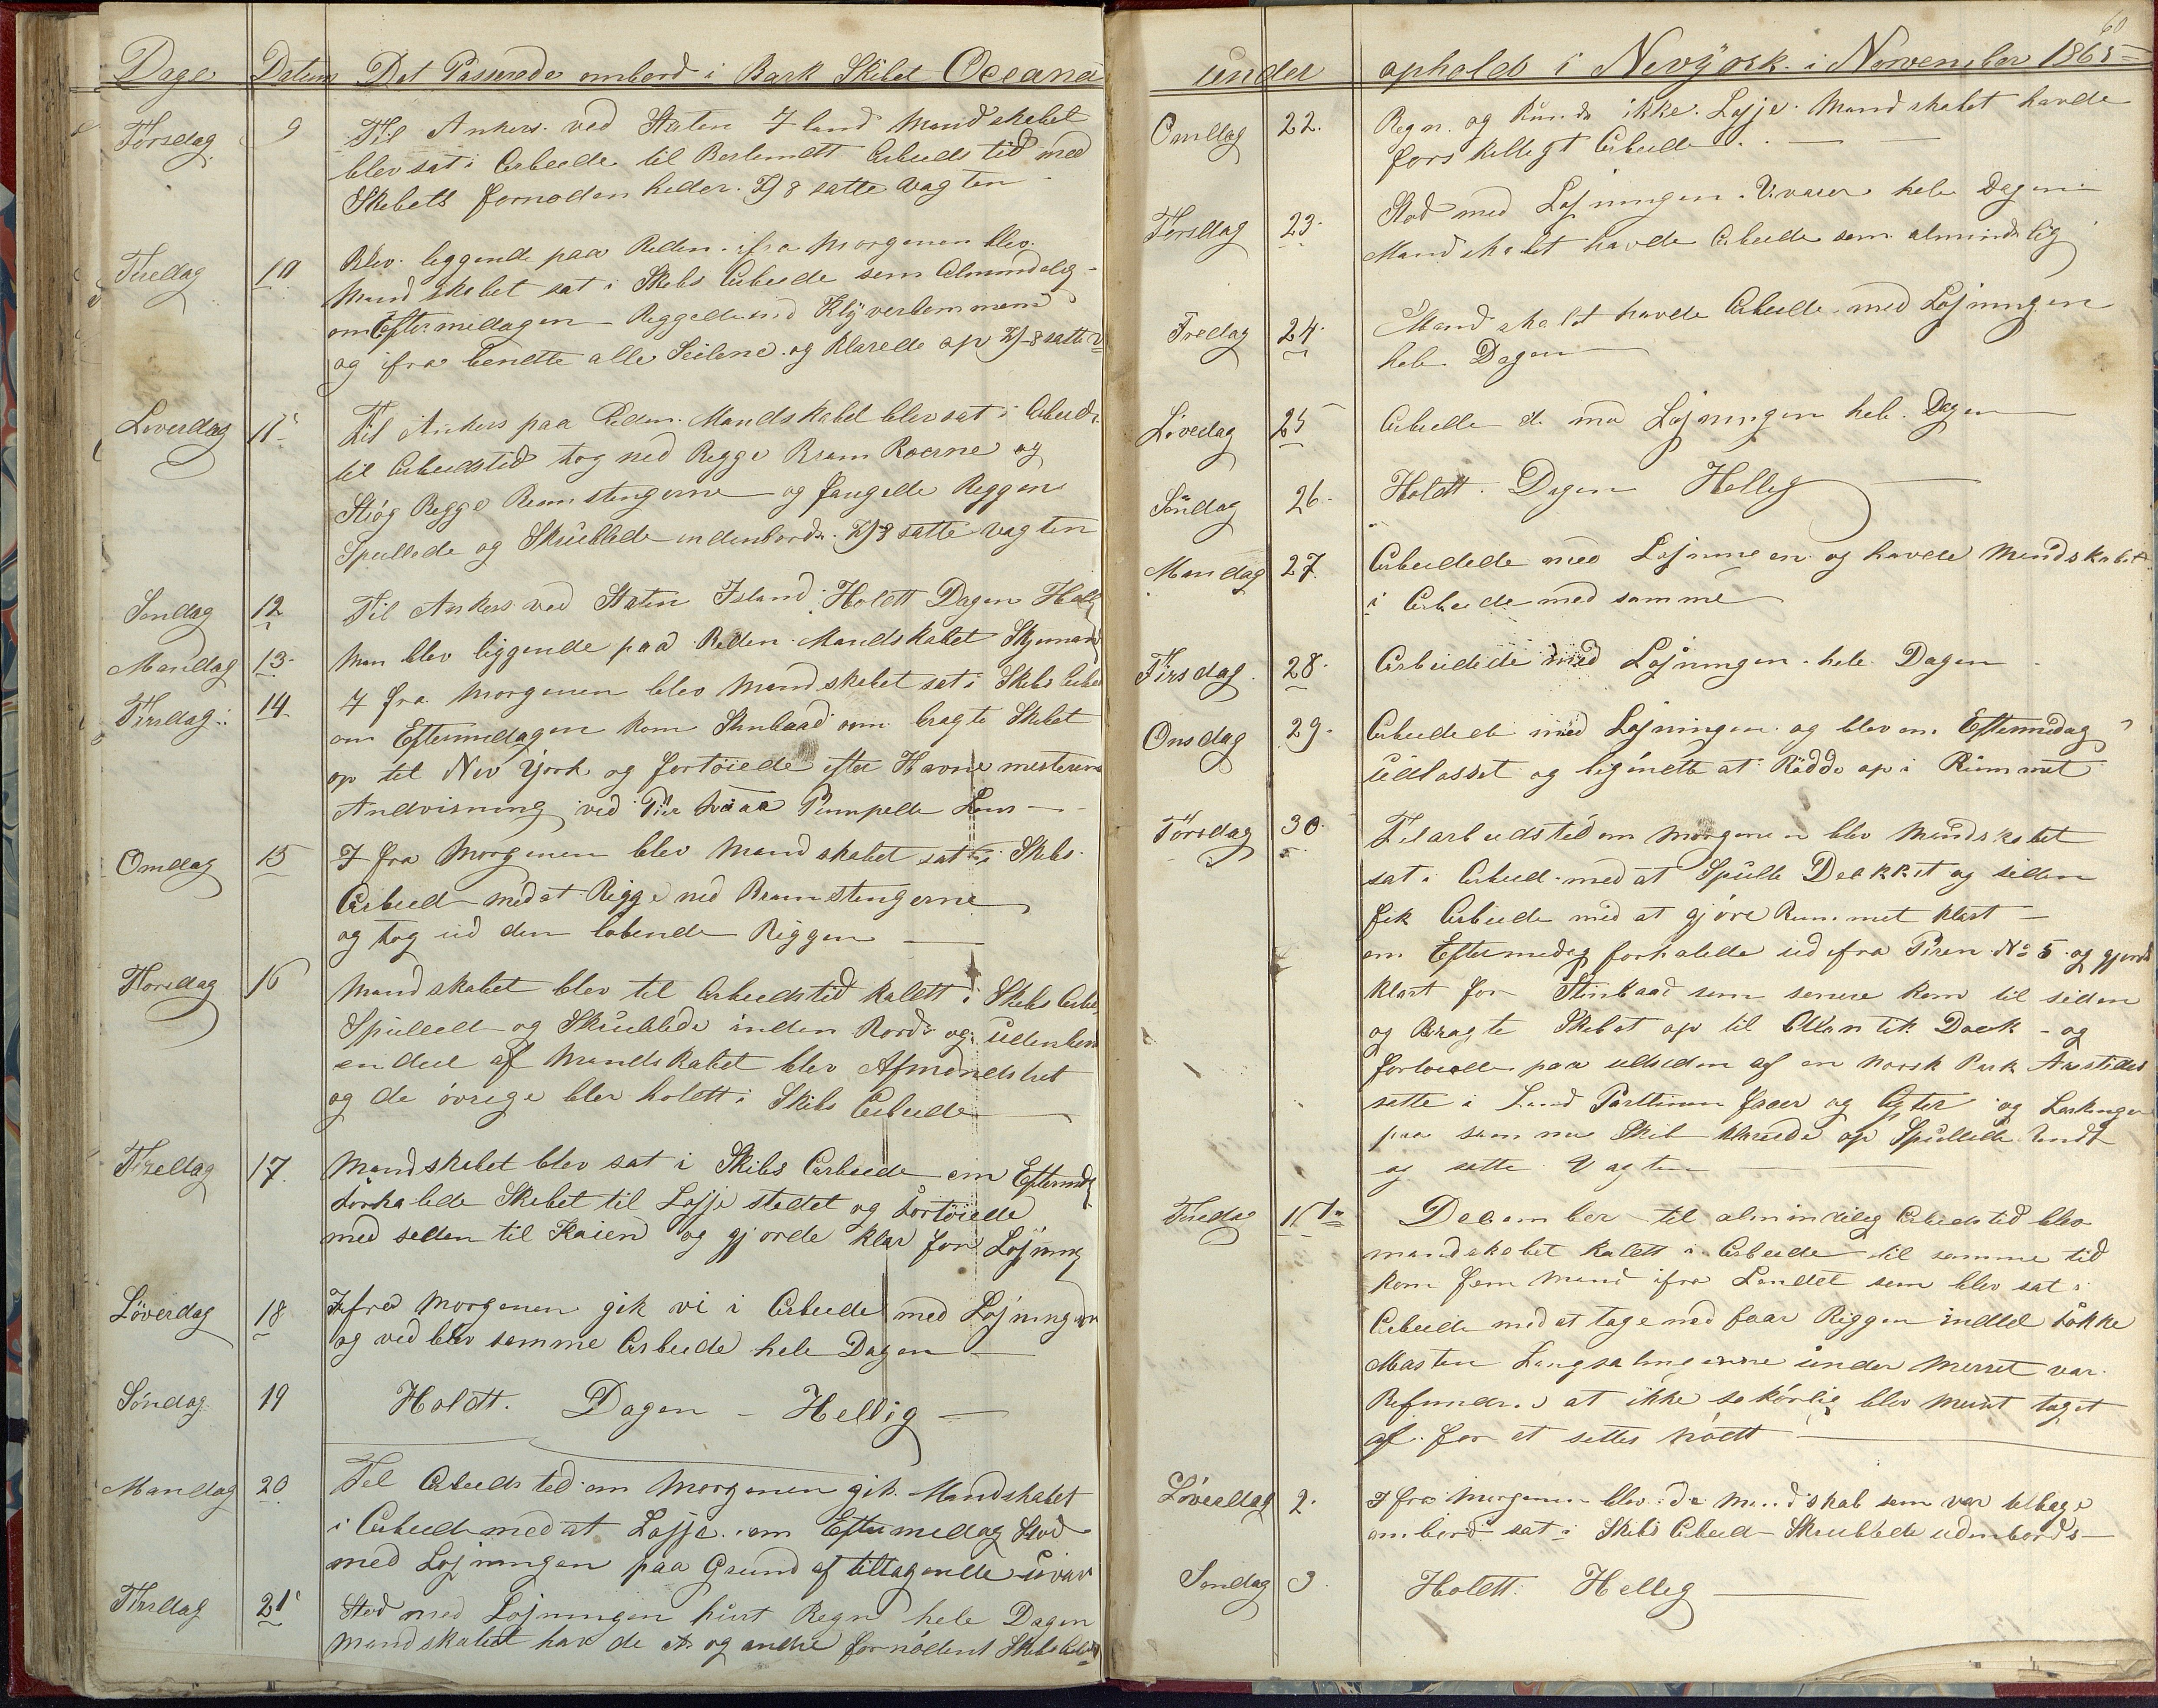 Dage Datum Det Passerede ombord i Bark Skibet Oceana
Torsdag 9 Til Ankers ved Staten Iland Mandskabet
blev sat i Arbeide til Bestemdtt Arbeids tid med
Skibets fornødenheder. Kl 8 satte Vagten
Fredag 10 Blev liggende paa Reden ifra Morgenen blev
Mandskabet sat i Skibs Arbeide som Almindelig
om Eftermidagen Riggede ind Klyverbommen
og ifra bendte alle Seilene og klarede op Kl 8 satte V
Loverdag 11 Til Ankers paa Reden Mandskabet blev sat i Arbeide
til Arbeidstid tog ned Bram Raaerne og
Stög Bramstengerne og Riggen
Spullede og Skubbede indenbords. Kl 8 satte Vagten
Sondag 12 Til Ankers ved Staten Island Holdtt Dagen Hellig
Mandag 13 Man blev liggende paa Reden Mandskabet
Tirsdag 14 I fra Morgenen blev Mandskabet sat i Skibs Arbeid
om Eftermidagen kom Stimbaad som bragte Skibet
op til Nev York og fortöiede efter Havnemesterens
Andvisning ved Pier
Onsdag 15 I fra Morgenen blev Mandskabet sat i Skibs
Arbeid med at Rigge ned Bramstengerne
og tog ud den löbende Riggen
Torsdag 16 Mandskabet blev til Arbeidstid kaldtt i Skibs Arbei
Spulled og Skubbede inden Bords og udenbor
en deel af Mandskabet blev Afmöndstret
og de övrige blev holdtt i Skibs Arbeide
Fredag 17. Mandskabet blev sat i Skibs Arbeide om Eftermidg
forhalede Skibet til Losje stedet og fortöiede
med seden til Kaien og gjorde klar for Losjning
Löverdag 18 I fra Morgenen gik vi i Arbeide med Losjningen
og ved blev samme Arbeide hele Dagen
Söndag 19 Holdtt. Dagen - Hellig
Mandag 20 Til Arbeids tid om Morgenen gik Mandskabet
i Arbeid med at Losje. om Eftermidag Stod
med Losjningen paa Grund af tiltagende uvær
Tirsdag 21 Stod med Losjningen Regn hele Dagen
Mandskabet havde og andre fornödent Skibs Arbeid
60
under ophold i Nevyork i November 1865
Onsdag 22. Regn og Kunde ikke Losje. Mandskabet havde
forskelligt Arbeide
Torsdag 23. Stod med Losjningen. Uvær hele Dagen
Mandskabet havde Arbeide som almindelig
Fredag 24. Mandskabet havde Arbeide med Losjningen
hele Dagen
Löverdag 25 Arbeidede med Losjningen hele Dagen
Söndag 26. Holdtt. Dagen Hellig
Mandag 27. Arbeidede med Losjningen og havde Mandskabet
i Arbeide med samme
Tirsdag 28. Arbeidede med Losjningen hele Dagen
Onsdag 29. Arbeidede med Losjningen og blev om Eftermidag
Udlosset og begÿndte at Rödde op i Rummet
Torsdag 30. Til arbeidstid om Morgenen blev Mandskabet
sat i Arbeid med at Spulle Dekket og siden
fik Arbeide med at gjöre Rummet klart
om Eftermidg forhalede ud ifra Piren No 5 og gjorde
klart for Stimbaad som senere kom til siden
og Bragte Skibet op til Atlantik Dock - og
fortoiede paa udsiden af en Norsk Bark Aristides
satte i Land for og Agter og
paa samme Skib klarede op Spullede Rundt
og satte Vagten
Fredag 1 December til almindelig Arbeidstid blev
mandskabet kaldtt i Arbeide til samme tid
kom fem Mand ifra Landet som blev sat i
Arbeide med at tage ned for Riggen indtil Fokke
Masten Langsalingerne under Merset var
Befunden at ikke blev Merset taget
af for at settes nÿtt
Löverdag 2. I fra Morgenen blev de Mandskab som var tilbage
ombord sat i Skibs Arbeid - Skrubbede udenbords
Sondag 3. Holdtt Hellig